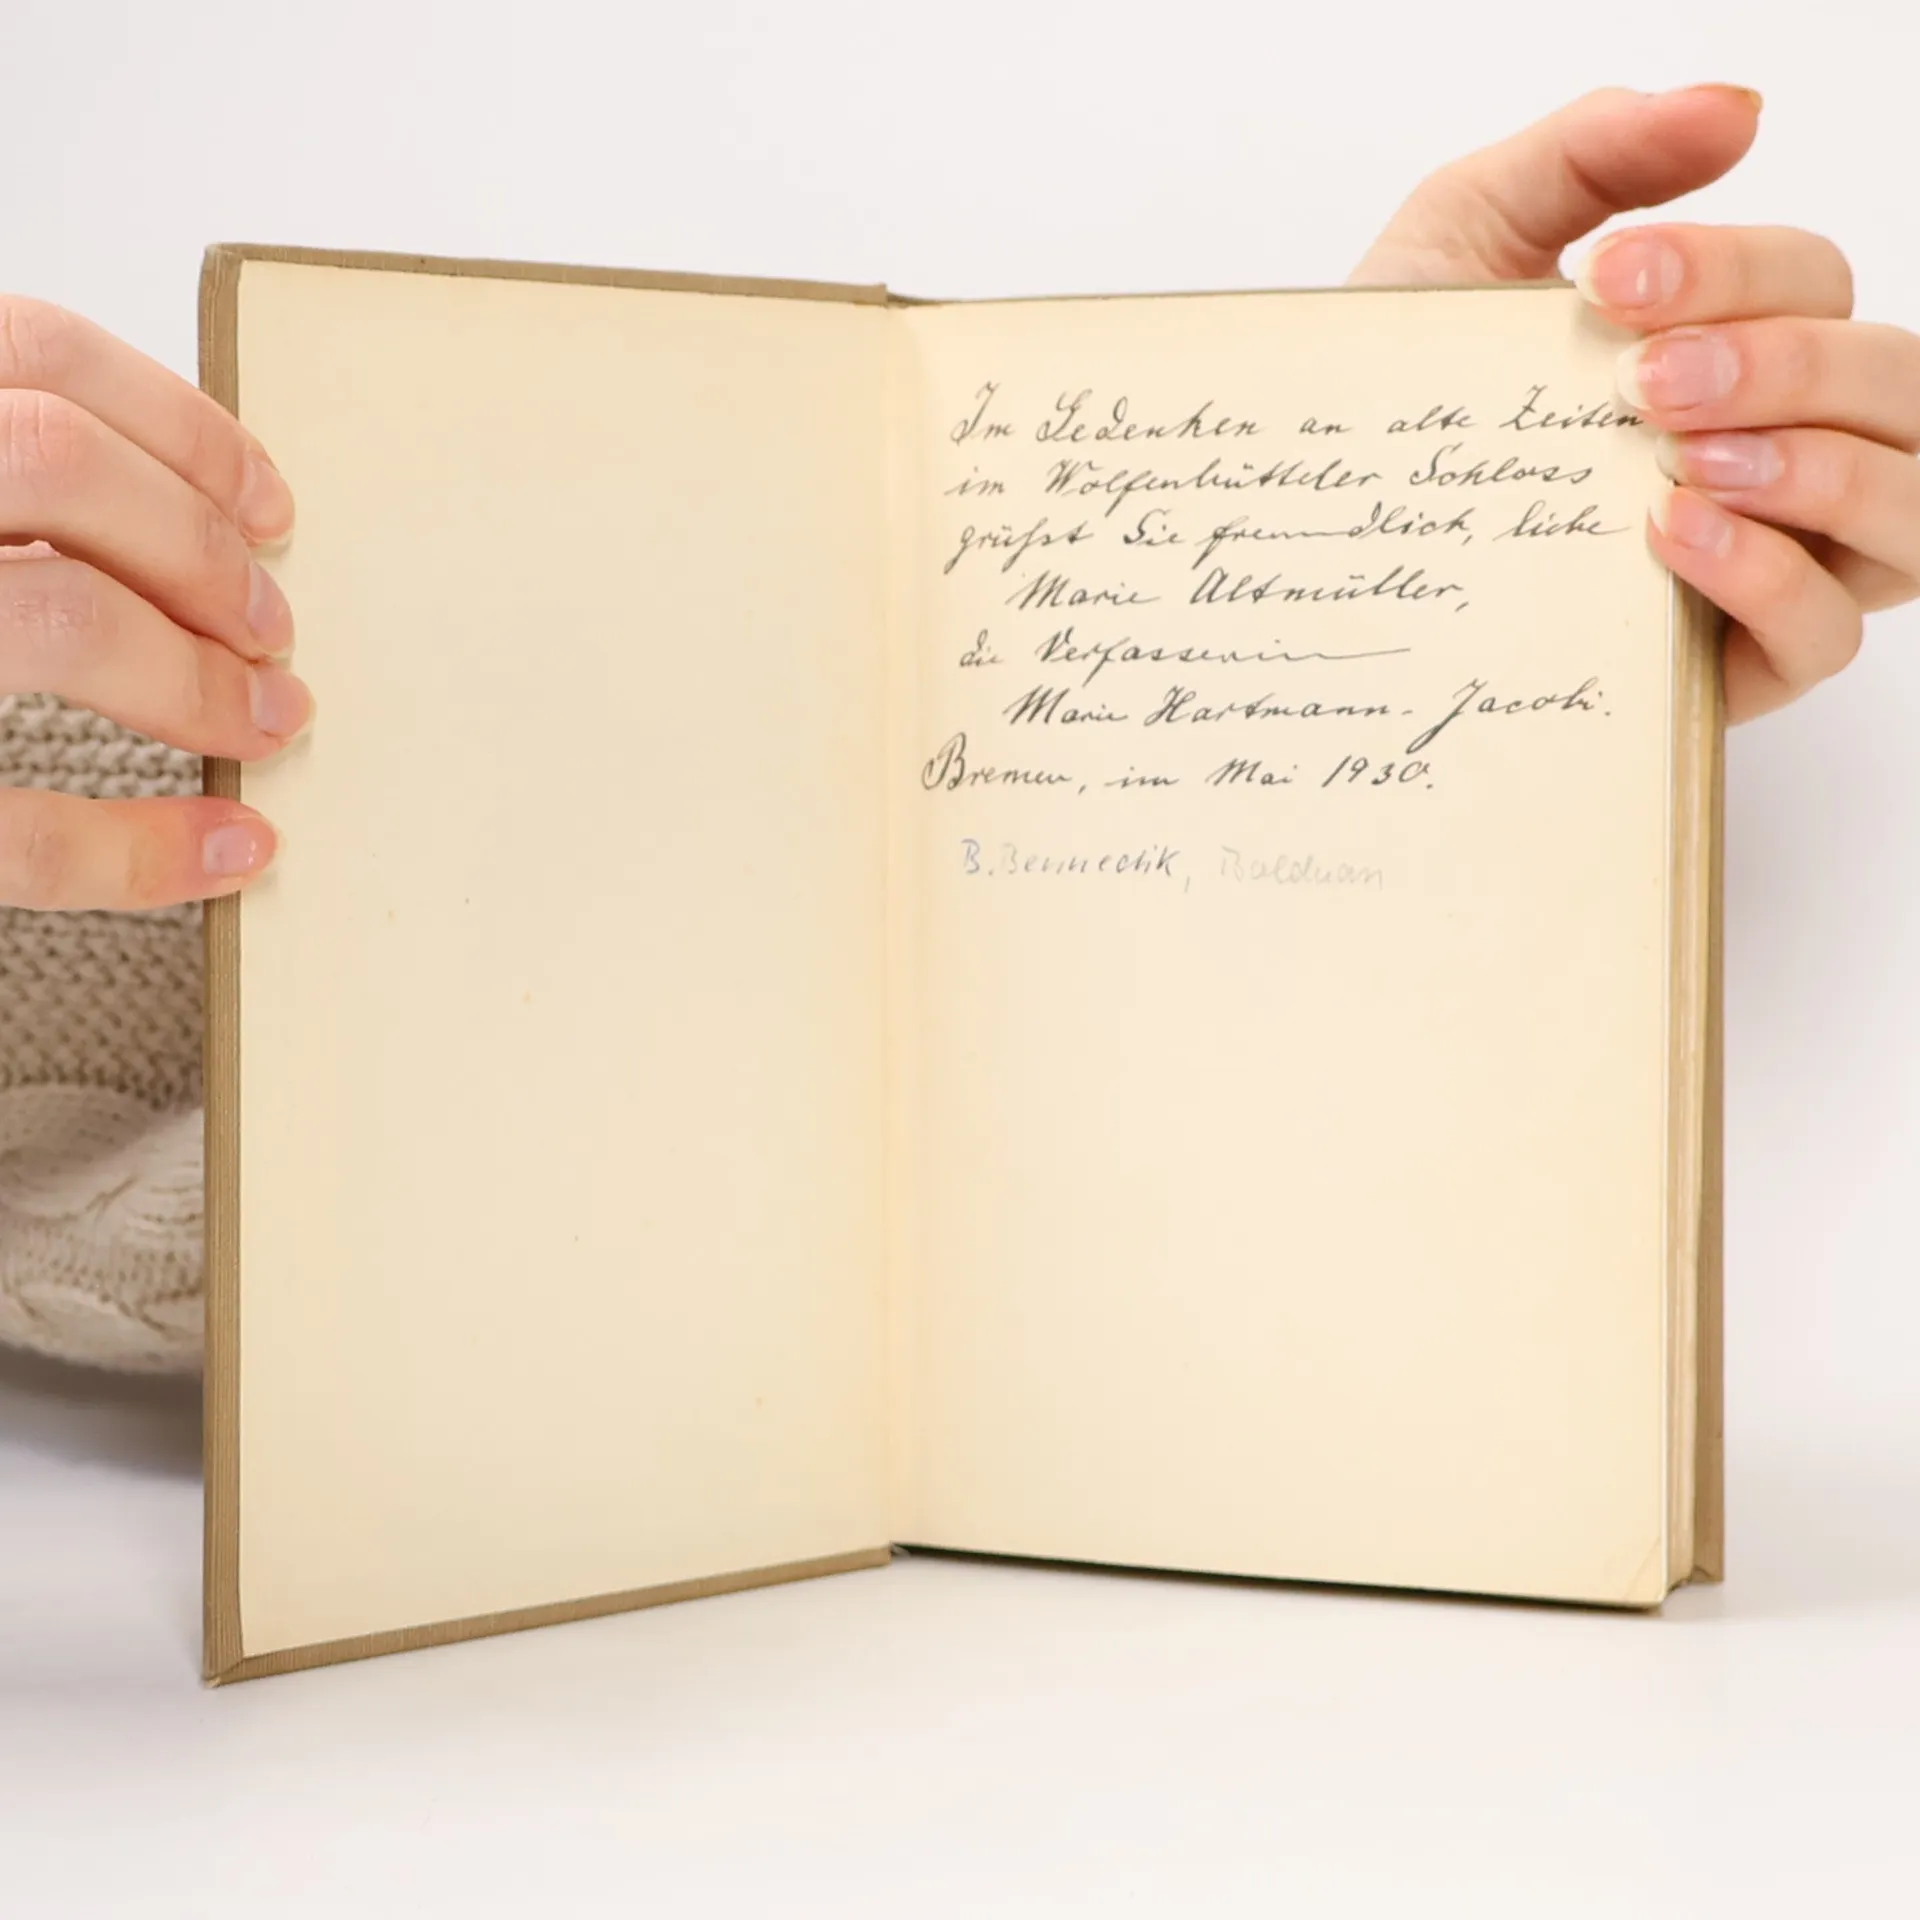 Im Gedenken an alte Zeiten
im Wolfenbütteler Schloss
grüßt Sie freundlich, liebe
Marie Altmüller,
die Verfasserin
Marie Hartmann-Jacobi.
Bremen, im Mai 1930.
B. Bennedik, Balduan